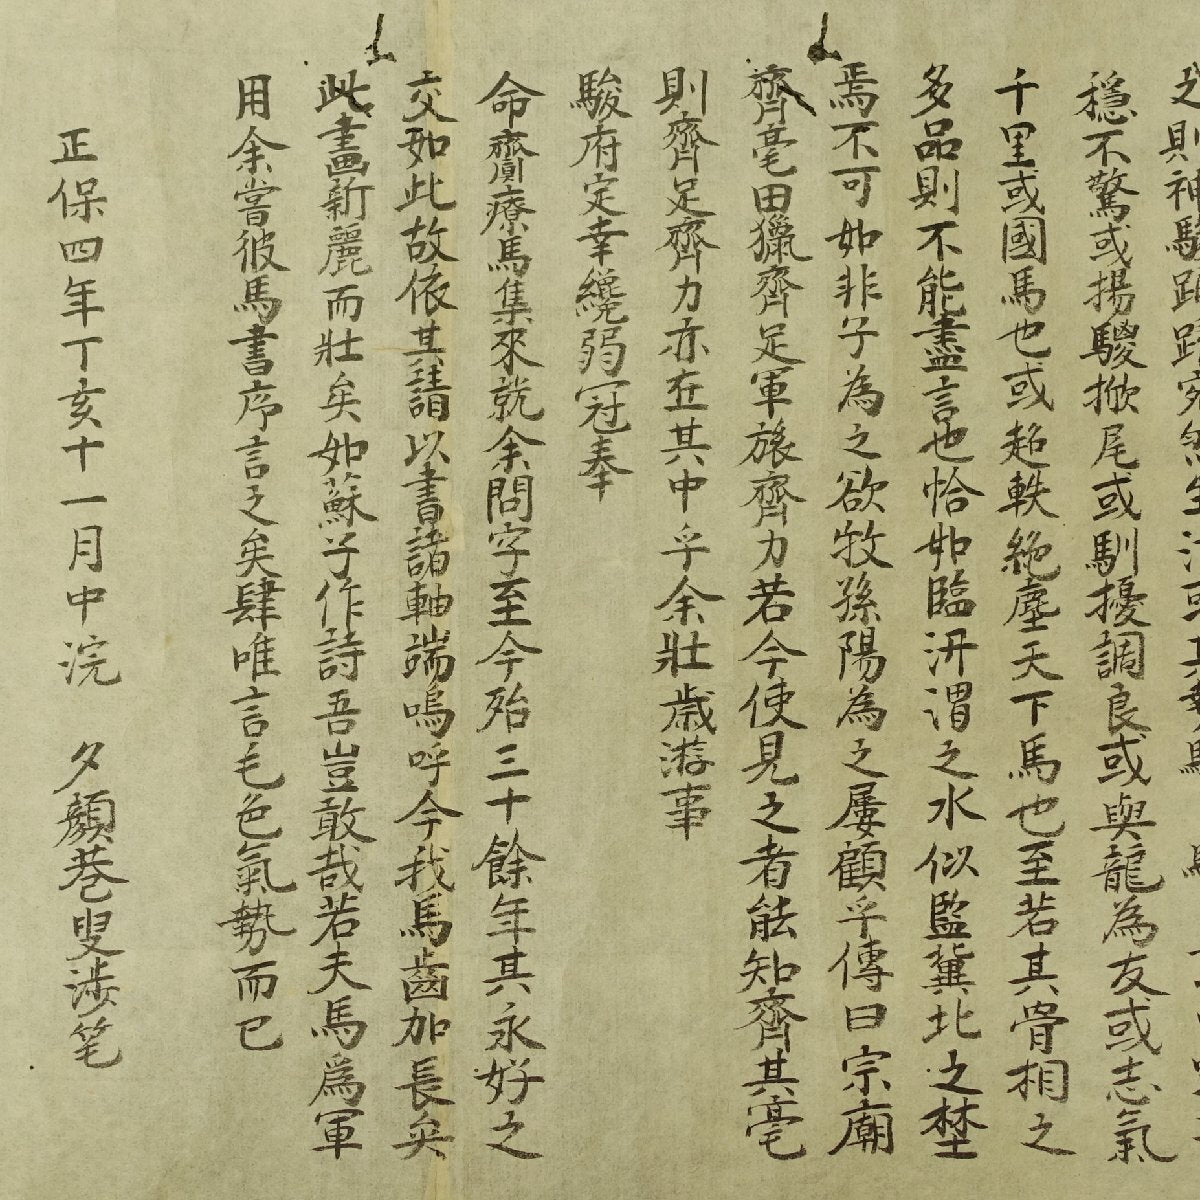 穩不驚或揚騣掀尾或馴擾調良或與龍為友或志氣
千里或國馬也或超軼絕塵天下馬也至若其骨相之
多品則不能盡言也恰如臨汧渭之水似監冀北之埜
焉不可如非子為之欲牧孫陽為之屢顧乎傳曰宗廟
齊毫田獵齊足軍旅齊力若今使見之者能知齊其毫
則齊足齊力亦在其中乎余壯歲游事
駿府定幸纔弱冠奉
命齎療馬集來就余問字至今殆三十餘年其永好之
交如此故依其請以書諸軸端嗚呼今我馬齒加長矣
此畫新麗而壯矣如蘇子作詩吾豈敢哉若夫馬爲軍
用余嘗彼馬書序言之矣肆唯言毛色氣勢而已
正保四年丁亥十一月中浣 夕顏巷叟涉笔